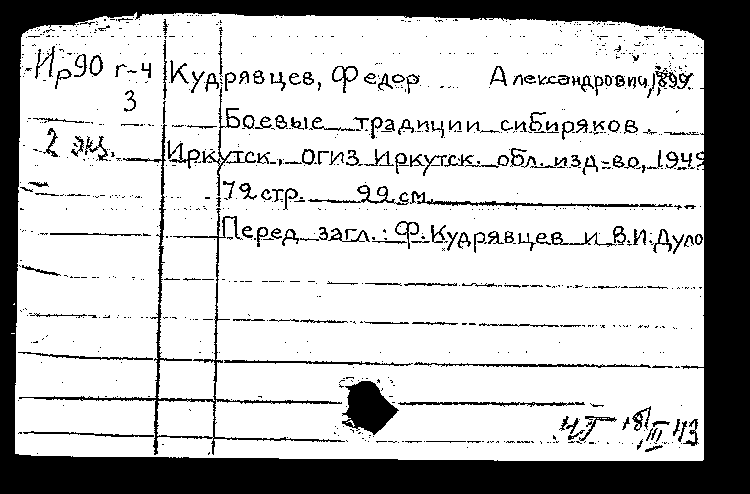 Ир90 г-4
3
2 экз.
Кудрявцев, Федор Александрович, 1899
Боевые традиции сибиряков.
Иркутск, ОГИЗ Иркутск. обл. изд-во, 1949
72 стр. 22 см.
Перед загл.: Ф. Кудрявцев и В.И. Дуло